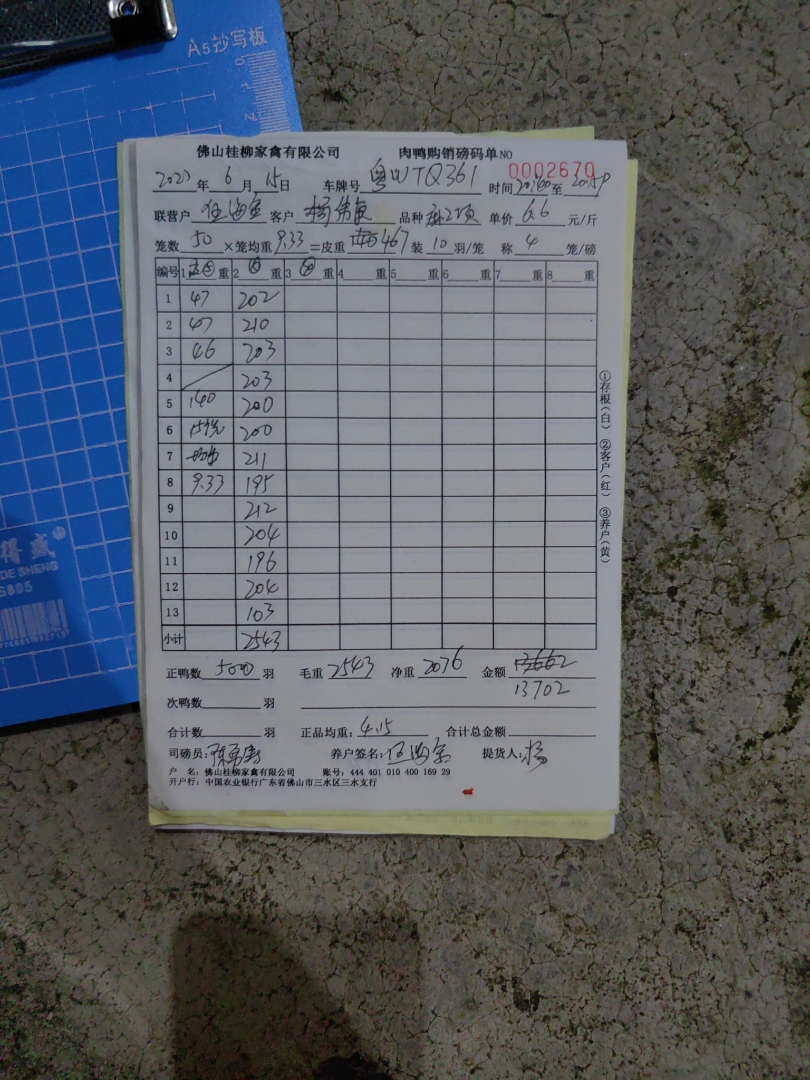 A5抄写板
0
1
2
佛山桂柳家禽有限公司 肉鸭购销磅码单 NO 0002670
2023年 6月 15日 车牌号 粤WTQ361 时间 至
联营户 客户 杨 品种 单价 6.6 元/斤
笼数 50 ×笼均重 9.33 =皮重 467 装 10 羽/笼 称 4 笼/磅
编号 1 重 2 重 3 重 4 重 5 重 6 重 7 重 8 重
1 47 202
2 47 210
3 46 203
4 203
5 140 200
6 15笼 200
7 211
8 9.33 195
9 212
10 204
11 196
12 204
13 103
小计 2543
①存根(白) ②客户(红) ③养户(黄)
正鸭数 500 羽 毛重 2543 净重 2076 金额 13662
13702
次鸭数 羽
合计数 羽 正品均重: 4.15 合计总金额
司磅员: 养户签名: 提货人: 杨
户 名: 佛山桂柳家禽有限公司 账号: 444 401 010 400 169 29
开户行: 中国农业银行广东省佛山市三水区三水支行
得威
DE SHENG
S805